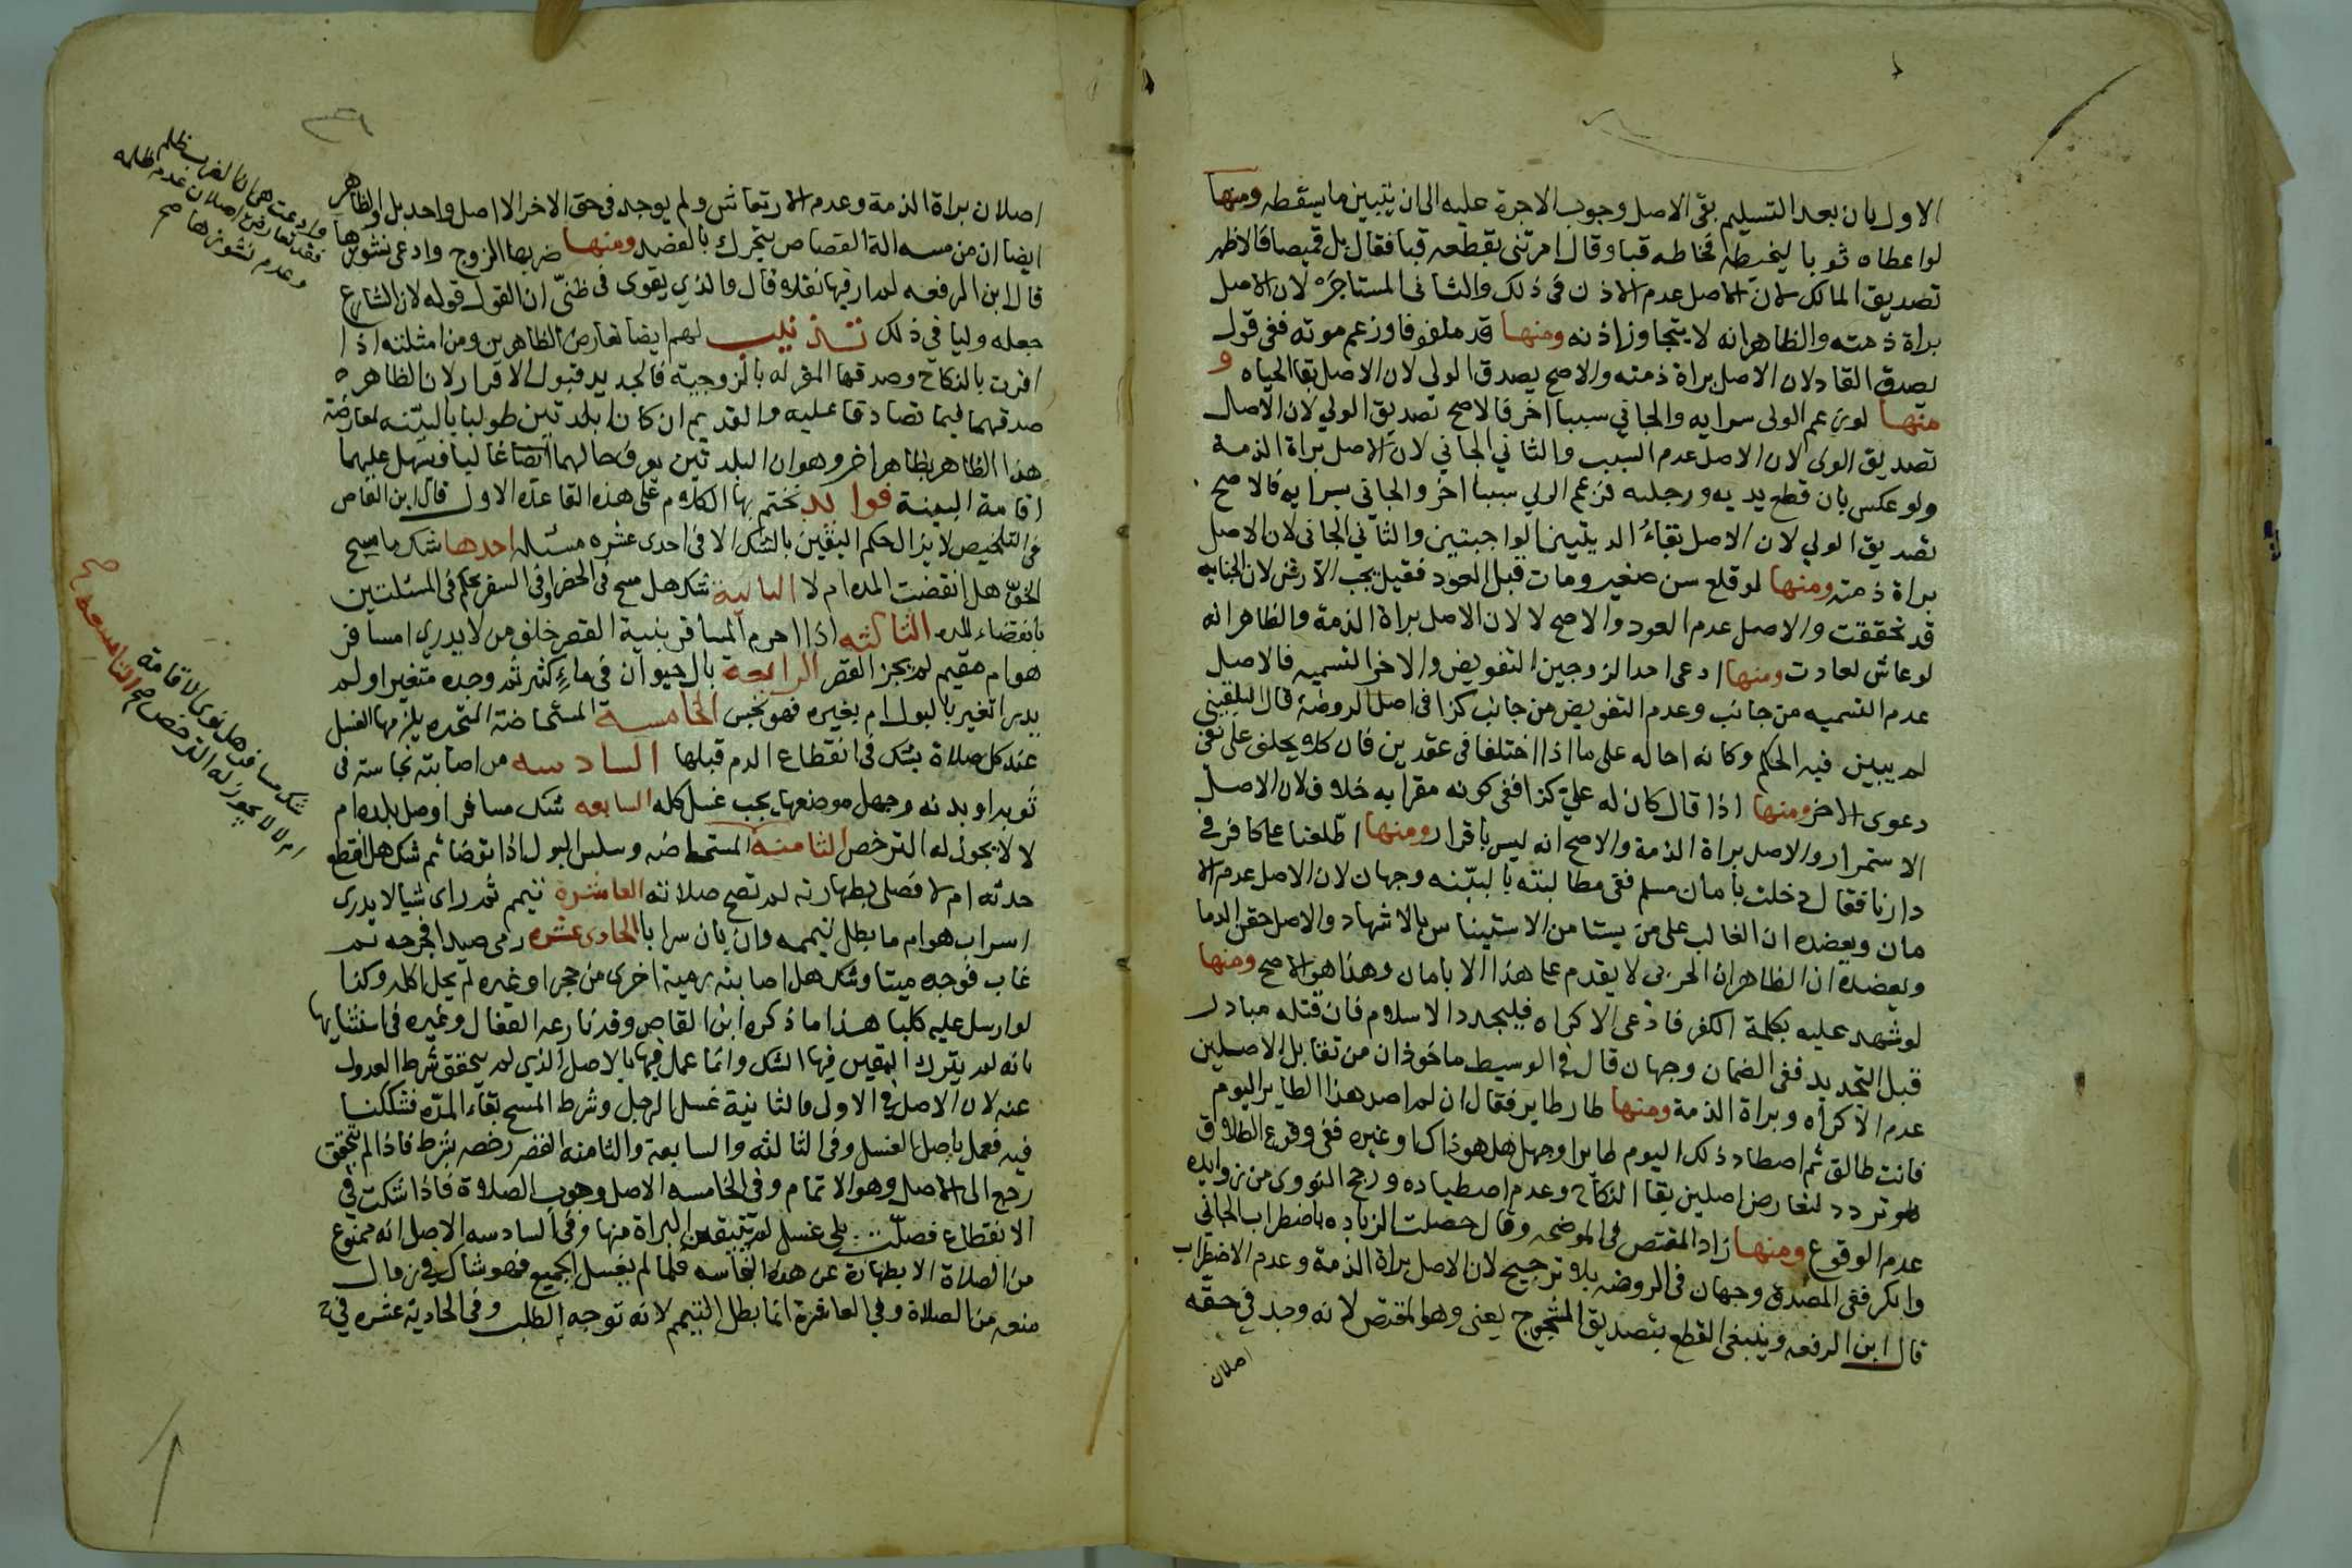 الاول بان بعد التسليم بقى الاصل وجوب الاجرة عليه الى ان يتبين ما يسقطه ومنها
لو اعطاه ثوبا ليخيطه فخاطه قبا وقال امرتني بقطعه قبا فقال بل قميصا فالاظهر
تصديق المالك لان الاصل عدم الاذن في ذلك والثاني المستاجر لان الاصل
براة ذمته والظاهر انه لا يتجاوز اذنه ومنها قد ملفوفا وزعم موته ففي قول
يصدق القاد لان الاصل براة ذمته والاصح يصدق الولى لان الاصل بقا الحياه و
منها لو زعم الولى سرايه والجاني سببا اخر فالاصح تصديق الولي لان الاصل
تصديق الولى لان الاصل عدم السبب والثاني الجاني لان الاصل براة الذمة
ولو عكس بان قطع يديه ورجليه فزعم الولي سببا اخر والجاني سرايه فالاصح
تصديق الولي لان الاصل بقاء الديتين الواجبتين والثاني الجاني لان الاصل
براة ذمته ومنها لو قلع سن صغير ومات قبل العود فقيل يجب الارش لان الجنايه
قد تحققت والاصل عدم العود والاصح لا لان الاصل براة الذمة والظاهر انه
لو عاش لعادت ومنها ادعى احد الزوجين التفويض والاخر التسميه فالاصل
عدم التسميه من جانب وعدم التفويض من جانب كذا في اصل الروضة قال البلقيني
لم يبين فيه الحكم وكانه احاله على ما اذا اختلفا في عقدين فان كلا يحلف على نفي
دعوى الاخر ومنها اذا قال كان له علي كذا ففي كونه مقرا به خلاف لان الاصل
الاستمرار والاصل براة الذمة والاصح انه ليس باقرار ومنها اطلعنا على كافر في
دارنا فقال دخلت بامان مسلم ففي مطالبته بالبينه وجهان لان الاصل عدم الا
مان ويعضده ان الغالب على من يستامن الاستيناس بالاشهاد والاصل حقن الدما
ويعضده ان الظاهر ان الحربي لا يقدم على هذا الا بامان وهذا هو الاصح ومنها
لو شهد عليه بكلمة الكفر فادعى الاكراه فليجدد الاسلام فان قتله مبادر
قبل التجديد ففي الضمان وجهان قال في الوسيط ماخوذان من تقابل الاصلين
عدم الاكراه وبراة الذمة ومنها طار طاير فقال ان لم اصد هذا الطاير اليوم
فانت طالق ثم اصطاد ذلك اليوم طايرا وجهل هل هو ذاك او غيره ففي وقوع الطلاق
تردد لتعارض اصلين بقا النكاح وعدم اصطياده ورجح النووى من زوايده
عدم الوقوع ومنها زاد المقتص في الموضحه وقال حصلت الزياده باضطراب الجاني
وانكر ففي المصدق وجهان في الروضه بلا ترجيح لان الاصل براة الذمة وعدم الاضطراب
قال ابن الرفعه وينبغي القطع بتصديق المشجوج يعنى وهو المقتص لانه وجد في حقه
اصلان
اصلان براة الذمة وعدم الارتعاش ولم يوجد في حق الاخر الا اصل واحد بل والظاهر
ايضا ان من مسه الة القصاص يتحرك بالفضد ومنها ضربها الزوج وادعى نشوزها
وادعت هي ان الضرب ظلم
فقد تعارض اصلان عدم ظلمه
وعدم نشوزها صح
قال ابن الرفعه لم ار فيها نقلا قال والذي يقوى في ظني ان القول قوله لان الشارع
جعله وليا في ذلك تذنيب لهم ايضا تعارض الظاهرين ومن امثلته اذا
اقرت بالنكاح وصدقها المقر له بالزوجية فالجديد قبول الاقرار لان الظاهر
صدقهما فيما تصادقا عليه والقديم ان كانا بلديين طولبا بالبينه لمعارضة
هذا الظاهر بظاهر اخر وهو ان البلديين يعرف حالهما غالبا فيسهل عليهما
اقامة البينة فوايد نختم بها الكلام على هذه القاعده الاولى قال ابن القاص
في التلخيص لا يزال حكم اليقين بالشك الا في احدى عشره مسئله احدها شك ماسح
الخف هل انقضت المده ام لا الثانية شك هل مسح في الحضر او في السفر يحكم في المسئلتين
بانقضاء المده الثالثه اذا احرم المسافر بنية القصر خلف من لا يدري امسافر
هو ام مقيم لم يجز القصر الرابعة بال حيوان في ماء كثير ثم وجده متغيرا ولم
يدر اتغير بالبول ام بغيره فهو نجس الخامسة المستحاضة المتحيره يلزمها الغسل
عند كل صلاة يشك في انقطاع الدم قبلها السادسه من اصابته نجاسة في
ثوبه او بدنه وجهل موضعها يجب غسل كله السابعه شك مسافر اوصل بلده ام
لا لا يجوز له الترخص الثامنه المستحاضه وسلس البول اذا توضا ثم شك هل انقطع
شك مسافر هل نوى الاقامة
ام لا لا يجوز له الترخص صح التاسعه صح
حدثه ام لا فصلى بطهارته لم تصح صلاته العاشرة تيمم ثم راى شيا لا يدرى
اسراب هو ام ما بطل تيممه وان بان سرابا الحادى عشره رمى صيدا فجرحه ثم
غاب فوجده ميتا وشك هل اصابته رمية اخرى من حجر او غيره لم يحل اكله وكذا
لو ارسل عليه كلبا هذا ما ذكره ابن القاص وقد نازعه القفال وغيره في استثنايها
بانه لم يترك اليقين فيها بالشك وانما عمل فيها بالاصل الذي لم يتحقق شرط العدول
عنه لان الاصل في الاولى والثانية غسل الرجل وشرط المسح بقاء المده فشككنا
فيه فعمل باصل الغسل وفي الثالثه والسابعة والثامنه القصر رخصه بشرط فاذا لم يتحقق
رجع الى الاصل وهو الاتمام وفي الخامسه الاصل وجوب الصلاة فاذا شكت في
الانقطاع فصلت بلا غسل لم تتيقن البراة منها وفي السادسه الاصل انه ممنوع
من الصلاة الا بطهارة عن هذه النجاسه فلما لم يغسل الجميع فهو شاك في زوال
منعه من الصلاة وفي العاشرة انما بطل التيمم لانه توجه الطلب وفي الحادية عشره في